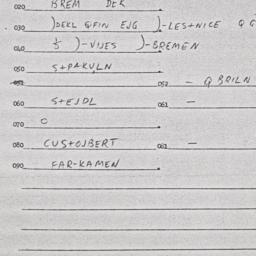 020 BREM DEK
030 )DEKL GIFIN EJG )-LES+NICE
040 )-VIJES )-BREMEN
050 S+PAKULN
052 - Q BRILN
060 S+EJDL 061 -
070 O
080 CUS+OJBERT 081 -
090 FAR-KAMEN